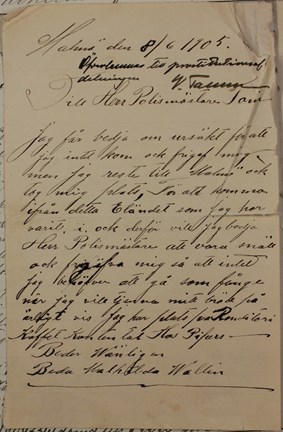 Malmö den 8/6 1905.
Öfverlemnas till prostitutionsaf
delningen
Till Herr Polismästare
Jag får bedja om ursäkt för att
jag intet kom och frigaf mig
men jag reste till Malmö och
tog mig plats, för att komma
ifrån detta Eländet som jag har
varit i, och derför vill jag bedja
Her Polismästare att vara snäll
och frigifva mig så att intet
jag behöfver att gå som fånge
när jag vill tjenna mitt bröd på
ärligt vis jag har plats på Konditori
Kaffet Kronten
Beder Vänligen
Beda Mathilda Wallin